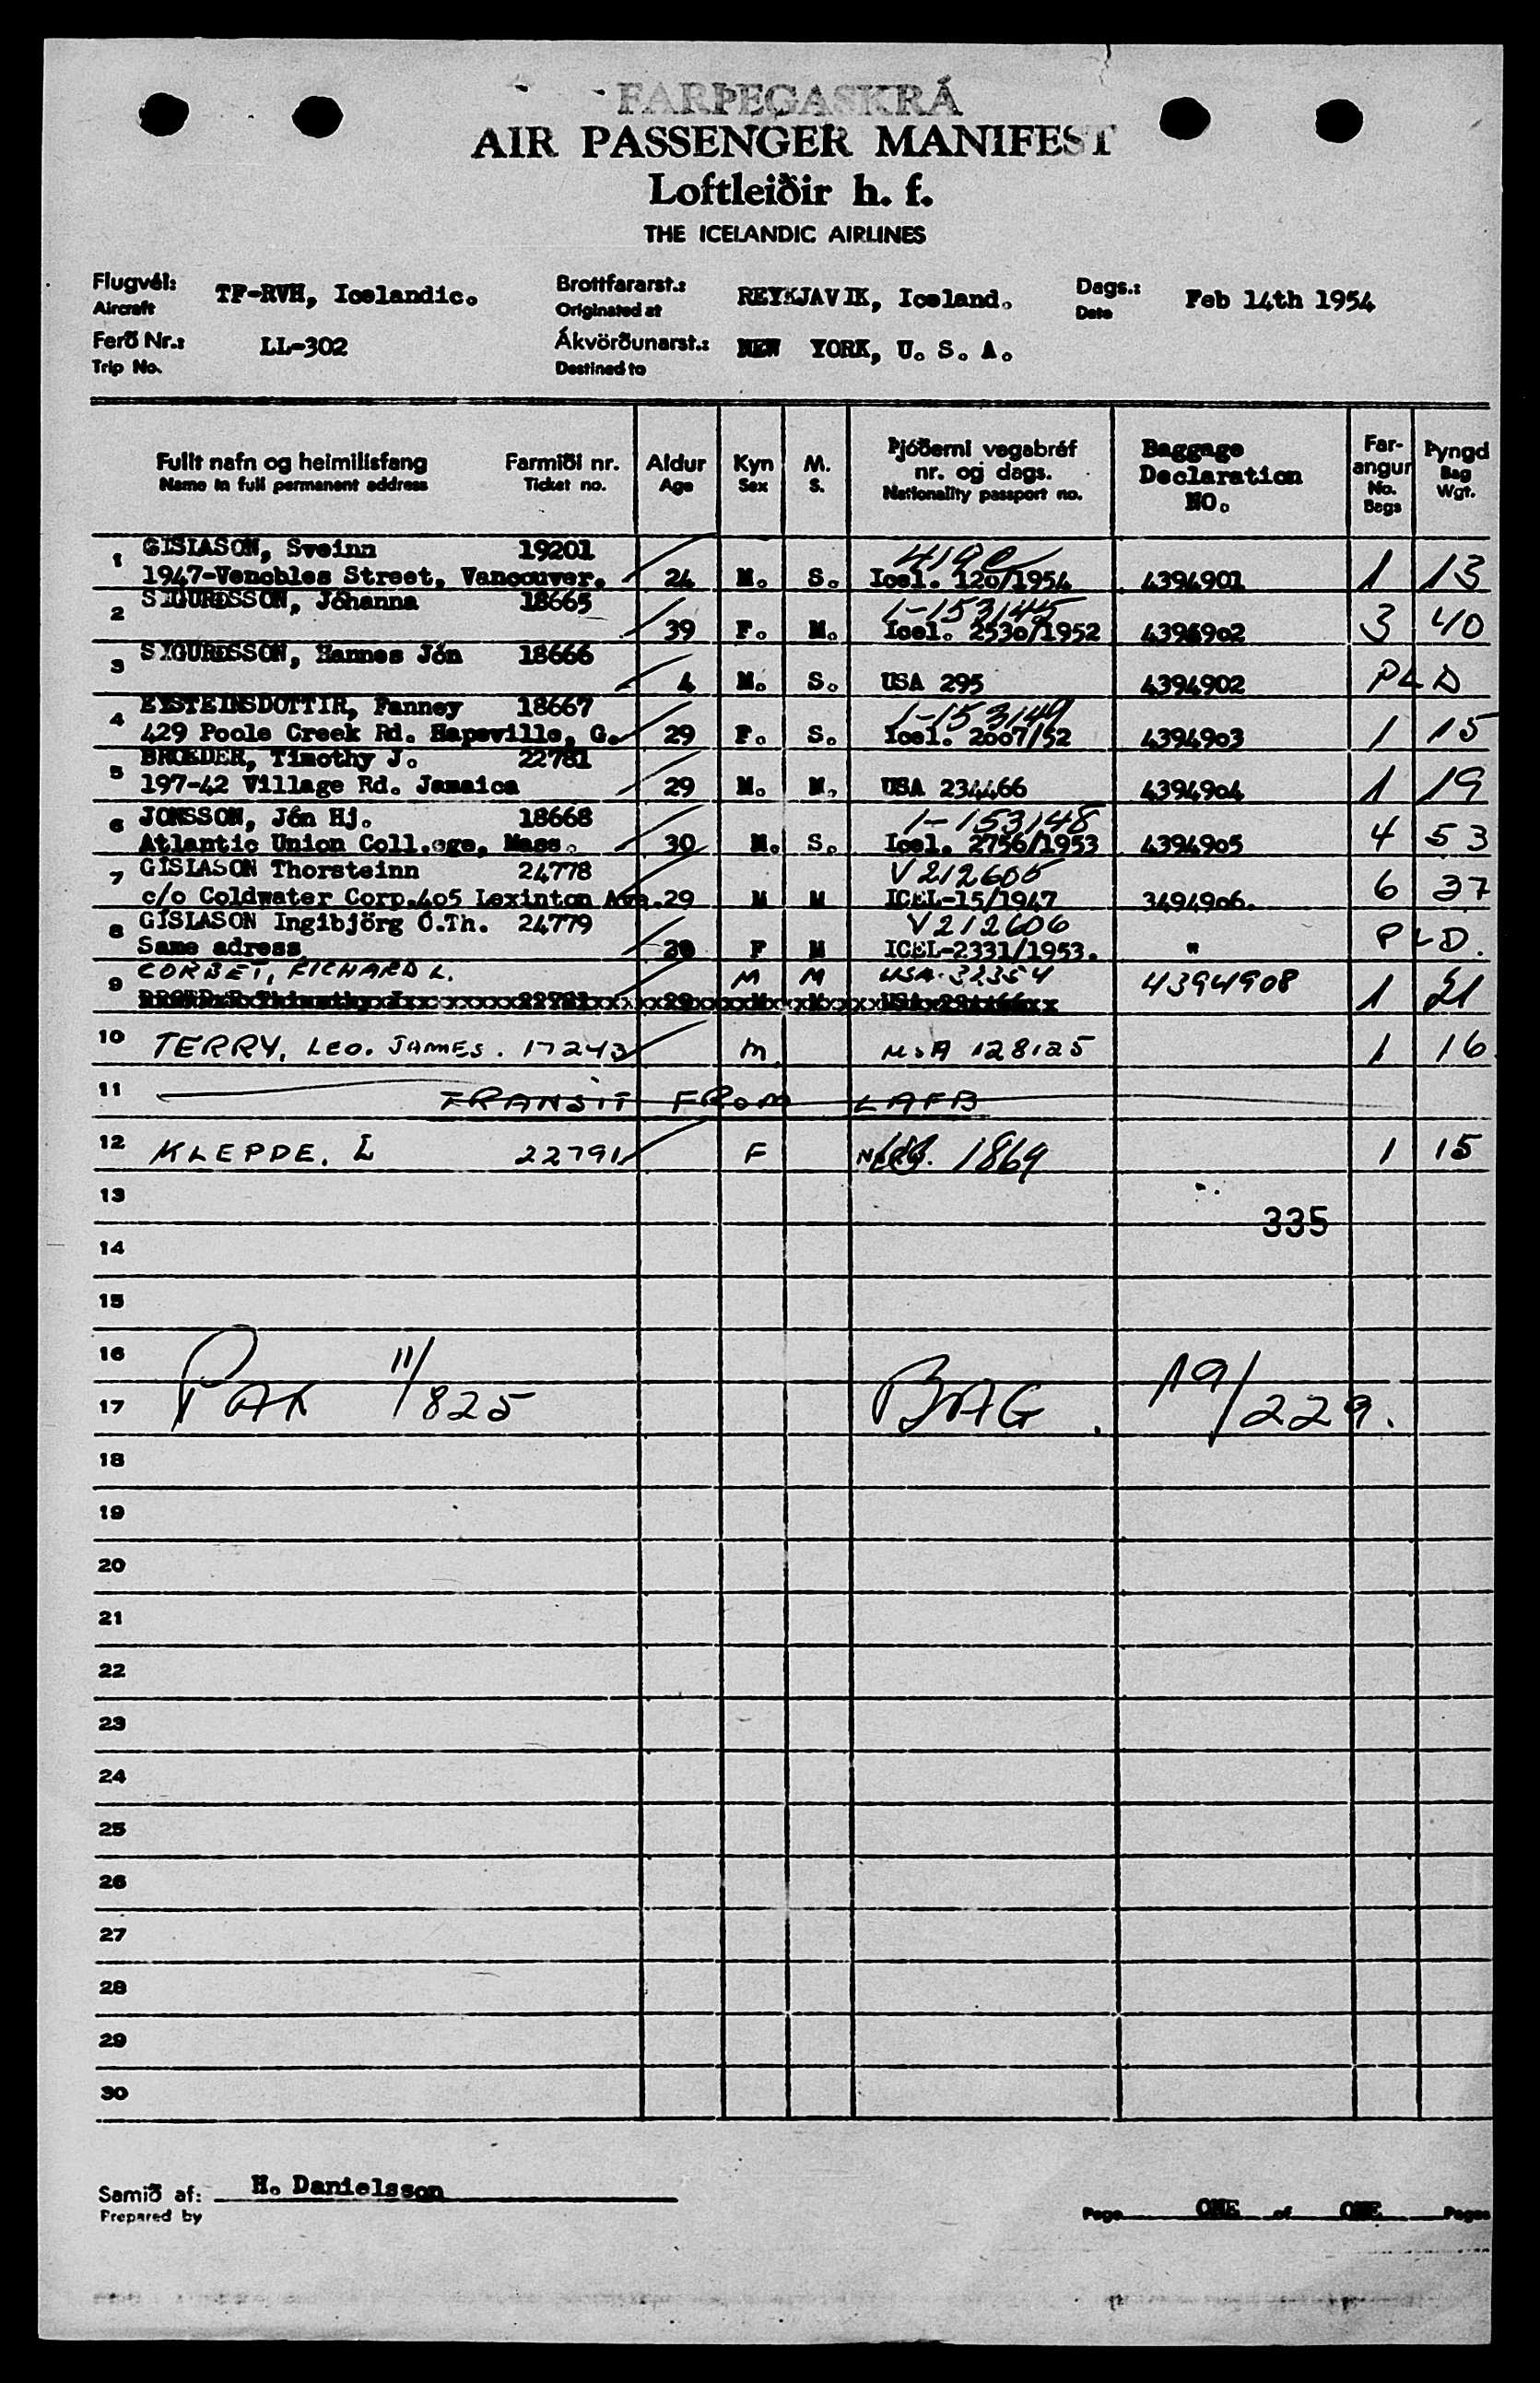 FARÞEGASKRÁ
AIR PASSENGER MANIFEST
Loftleiðir h. f.
THE ICELANDIC AIRLINES
Flugvél: TF-RVH, Icelandic. Brottfararst.: REYKJAVIK, Iceland. Dags.: Feb 14th 1954
Aircraft Originated at Date
Ferð Nr.: LL-302 Ákvörðunarst.: NEW YORK, U. S. A.
Trip No. Destined to
Fullt nafn og heimilisfang Farmiði nr. Aldur Kyn M. Þjóðerni vegabréf nr. og dags. Baggage Declaration NO. Far-angur Þyngd
Name in full permanent address Ticket no. Age Sex S. Nationality passport no. No. Bags Bag Wgt.
1 GISLASON, Sveinn 19201
1947-Venobles Street, Vancouver. 24 M. S. Icel. 120/1954 4394901 1 13
2 SIGURDSSON, Jóhanna 18665 1-153145
39 F. M. Icel. 2530/1952 4394902 3 40
3 SIGURDSSON, Hannes Jón 18666
4 M. S. USA 295 4394902 PLD
4 EYSTEINSDOTTIR, Fanney 18667 1-153149
429 Poole Creek Rd. Hapeville, G. 29 F. S. Icel. 2007/52 4394903 1 15
5 BROEDER, Timothy J. 22781
197-42 Village Rd. Jamaica 29 M. M. USA 234466 4394904 1 19
6 JONSSON, Jón Hj. 18668 1-153148
Atlantic Union Coll.ege, Mass. 30 M. S. Icel. 2756/1953 4394905 4 53
7 GÍSLASON Thorsteinn 24778 V212605
c/o Coldwater Corp.405 Lexinton Ave. 29 M M ICEL-15/1947 3494906. 6 37
8 GÍSLASON Ingibjörg Ó.Th. 24779 V212606
Same adress 30 F M ICEL-2331/1953. " PLD.
9 CORBET, RICHARD L. M M USA. 32354 4394908 1 21
22781 29 M M USA 234466
10 TERRY, LEO. JAMES. 17243 M USA 128125 1 16
11 TRANSIT FROM LAFB
12 KLEPDE. I 22791 F 1869 1 15
13
335
14
15
16
17 PAX 11/825 BAG. 19/229.
18
19
20
21
22
23
24
25
26
27
28
29
30
Samið af: H. Danielsson
Prepared by Page ONE of ONE Pages